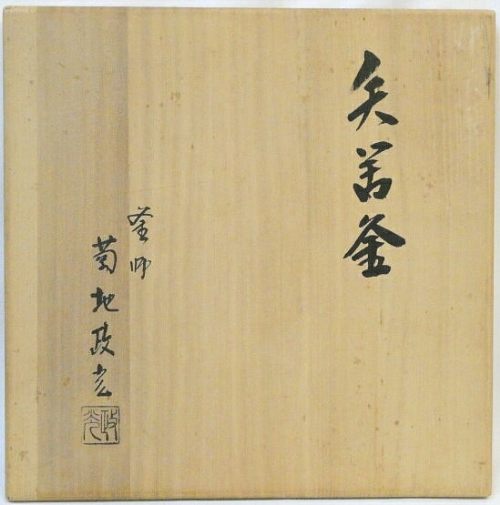 矢筈釜
釜師
菊地政光
政光